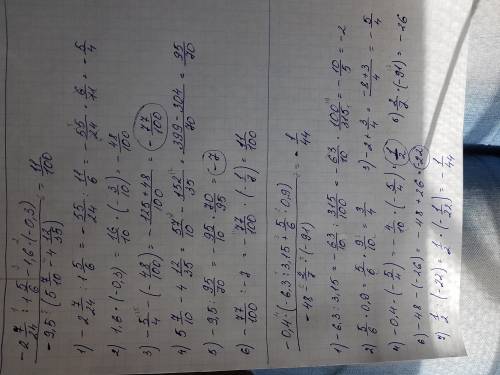 -2 7/24 : 1 5/6 - 1,6 · (-0,3)
-9,5 : (5 7/10 - 4 12/35) = 11/100
1) -2 7/24 : 1 5/6 = -55/24 : 11/6 = -55/24 · 6/11 = -5/4
2) 1,6 · (-0,3) = 16/10 · (-3/10) = -48/100
3) -5/4 - (-48/100) = -125+48/100 = -77/100
4) 5 7/10 - 4 12/35 = 57/10 - 152/35 = 399-304/70 = 95/70
5) -9,5 : 95/70 = -95/10 · 70/95 = -7
6) -77/100 : -7 = -77/100 · (-1/7) = 11/100
-0,4 · (-6,3 : 3,15 + 5/6 · 0,9)
-48 - 2/7 · (-91) = -1/44
1) -6,3 : 3,15 = -63/10 : 315/100 = -63/10 · 100/315 = -10/5 = -2
2) 5/6 · 0,9 = 5/6 · 9/10 = 3/4 3) -2 + 3/4 = -8+3/4 = -5/4
4) -0,4 · (-5/4) = -4/10 · (-5/4) = 1/2 5) 2/7 · (-91) = -26
6) -48 - (-26) = -48 + 26 = -22
7) 1/2 : (-22) = 1/2 · (1/-22) = -1/44